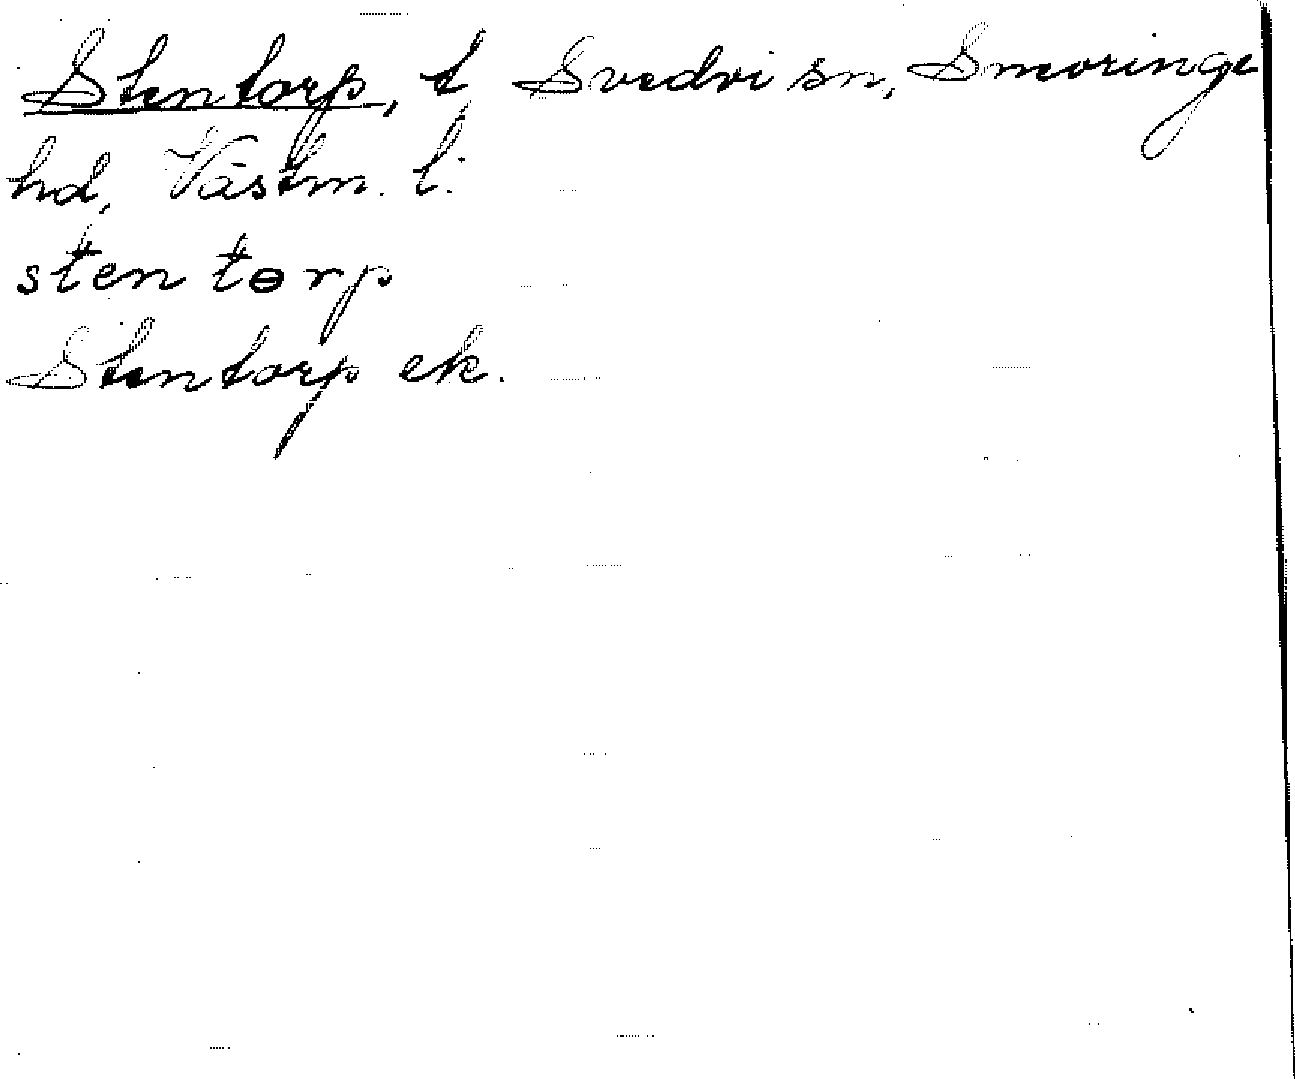 Stentorp, t Svedvi sn, Snevringe
hd, Västm. l.
stentɵrp
Stentorp ek.